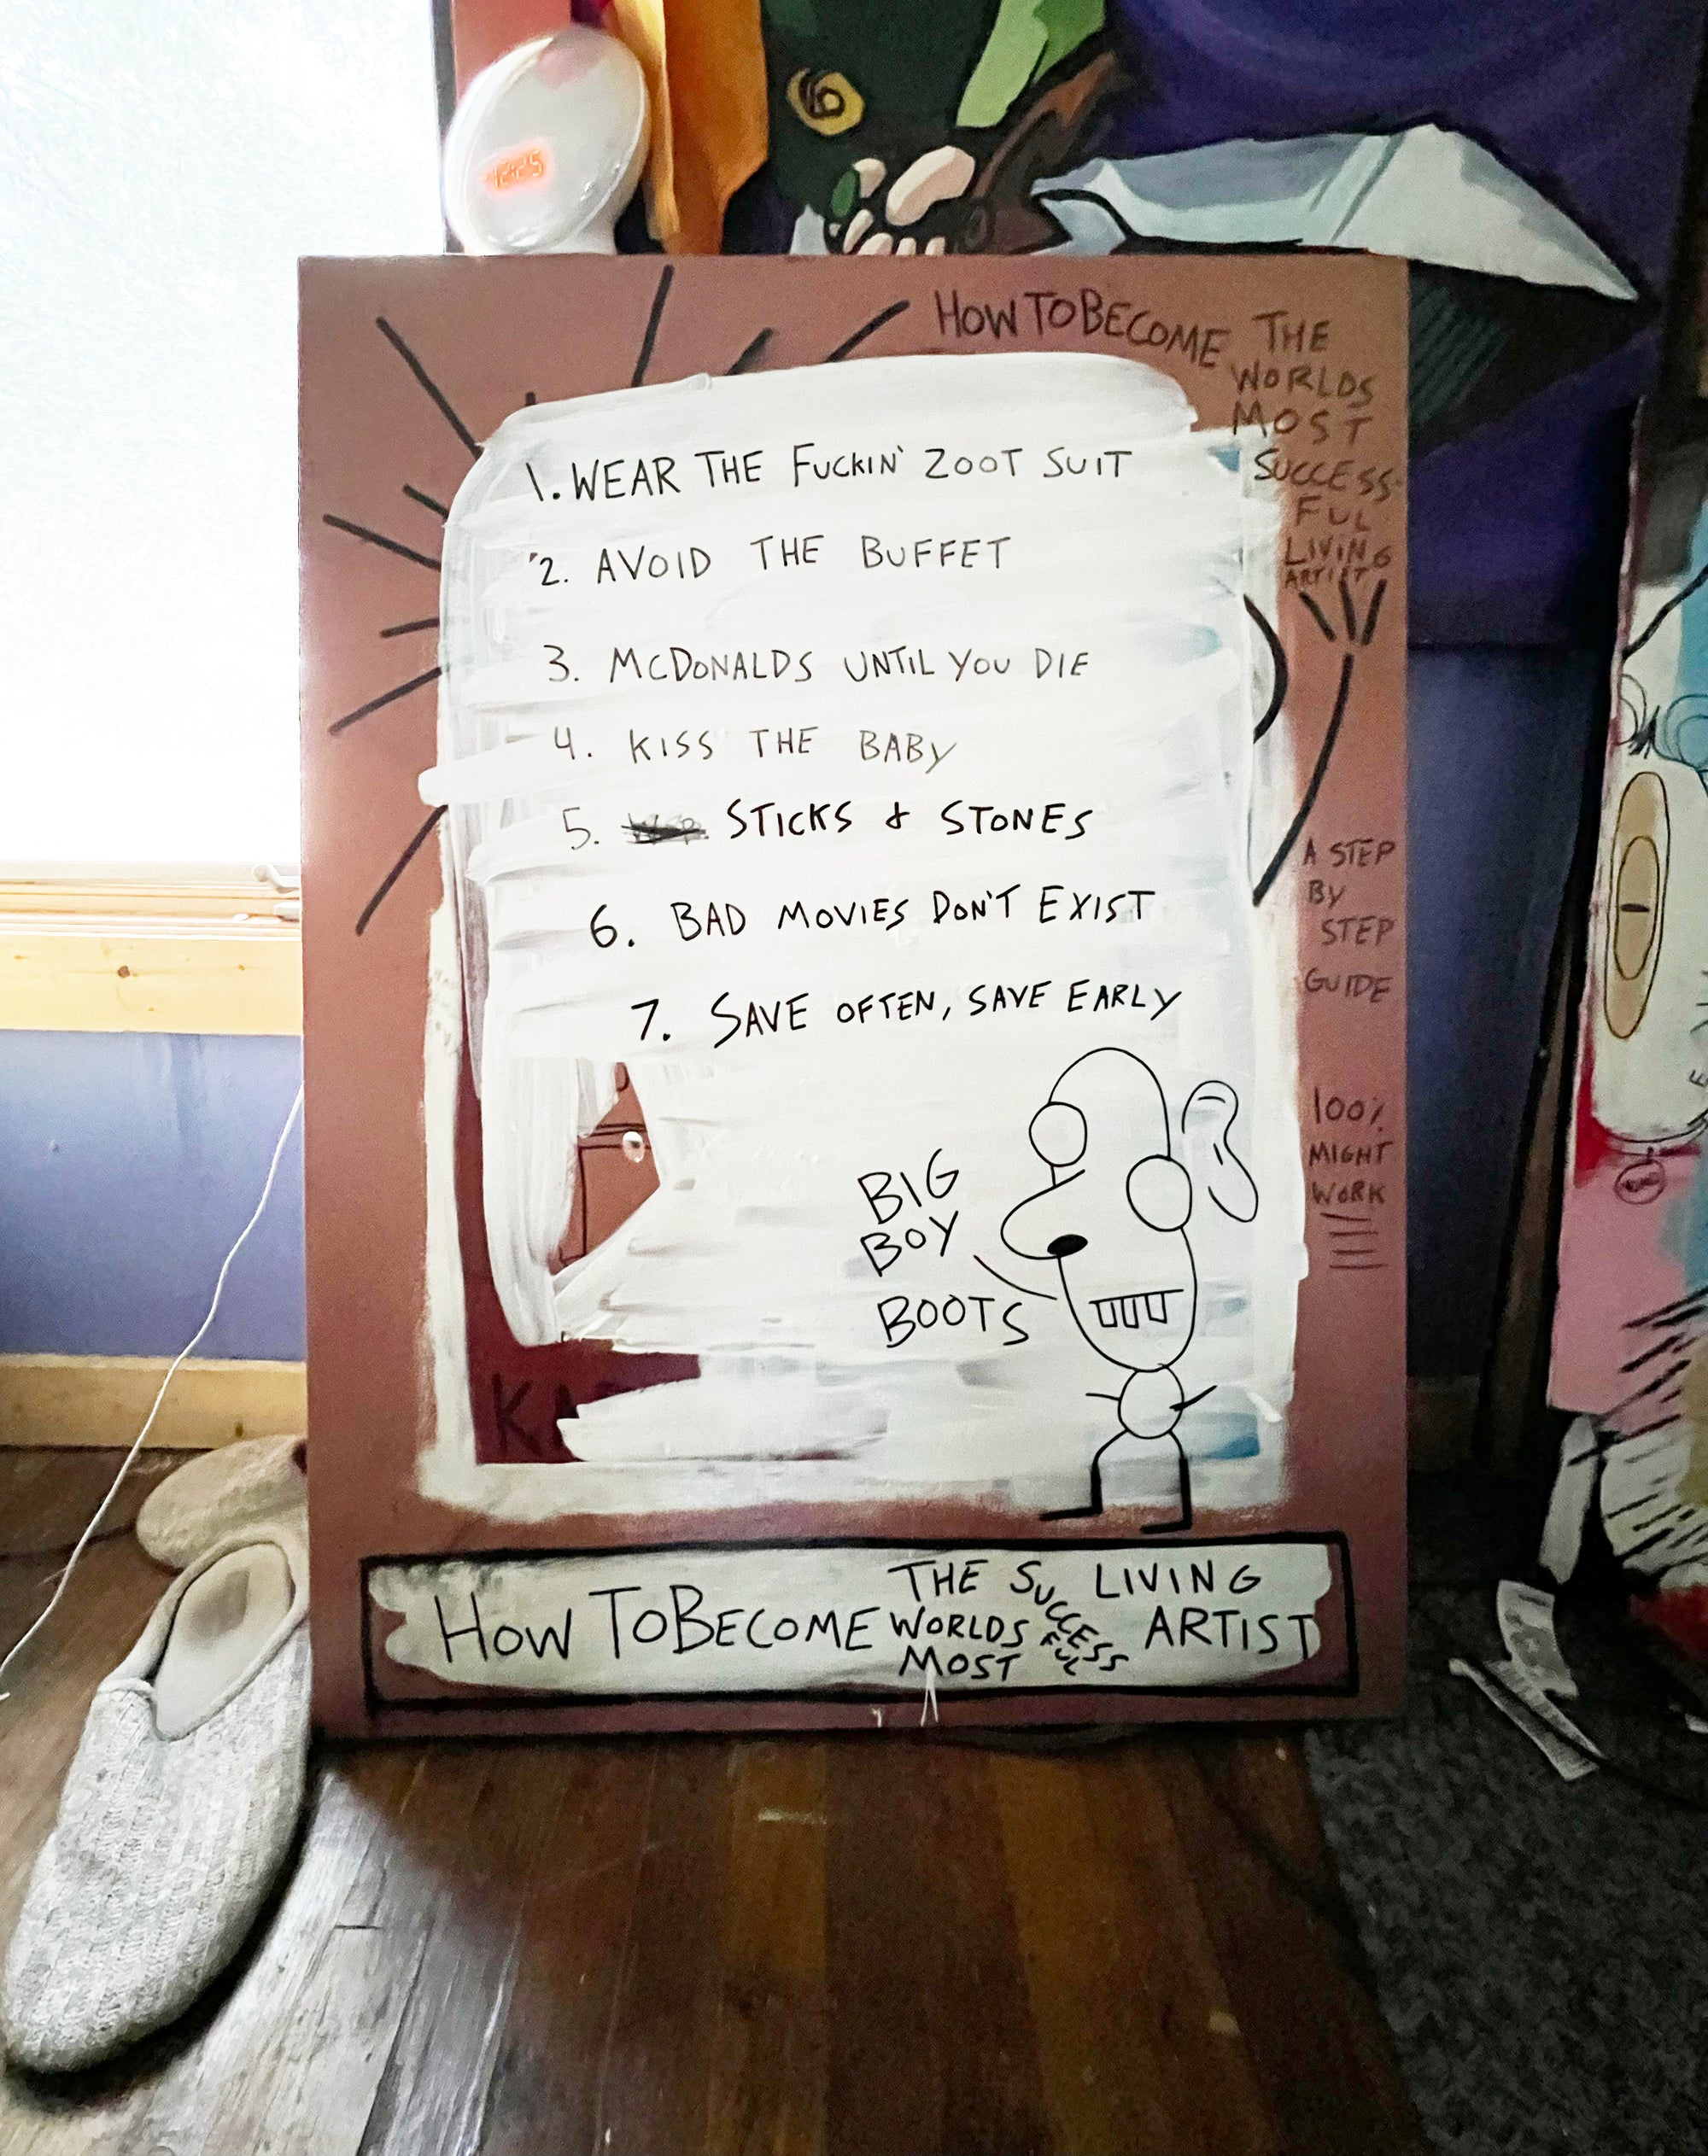 12:25
HOW TO BECOME THE
WORLDS
MOST
SUCCESS-
FUL
LIVING
ARTIST
1. WEAR THE FUCKIN' ZOOT SUIT
2. AVOID THE BUFFET
3. MCDONALDS UNTIL YOU DIE
4. KISS THE BABY
5. STICKS & STONES
6. BAD MOVIES DON'T EXIST
7. SAVE OFTEN, SAVE EARLY
A STEP
BY
STEP
GUIDE
100%
MIGHT
WORK
BIG
BOY
BOOTS
KA
HOW TO BECOME THE WORLDS MOST SUCCESSFUL LIVING ARTIST